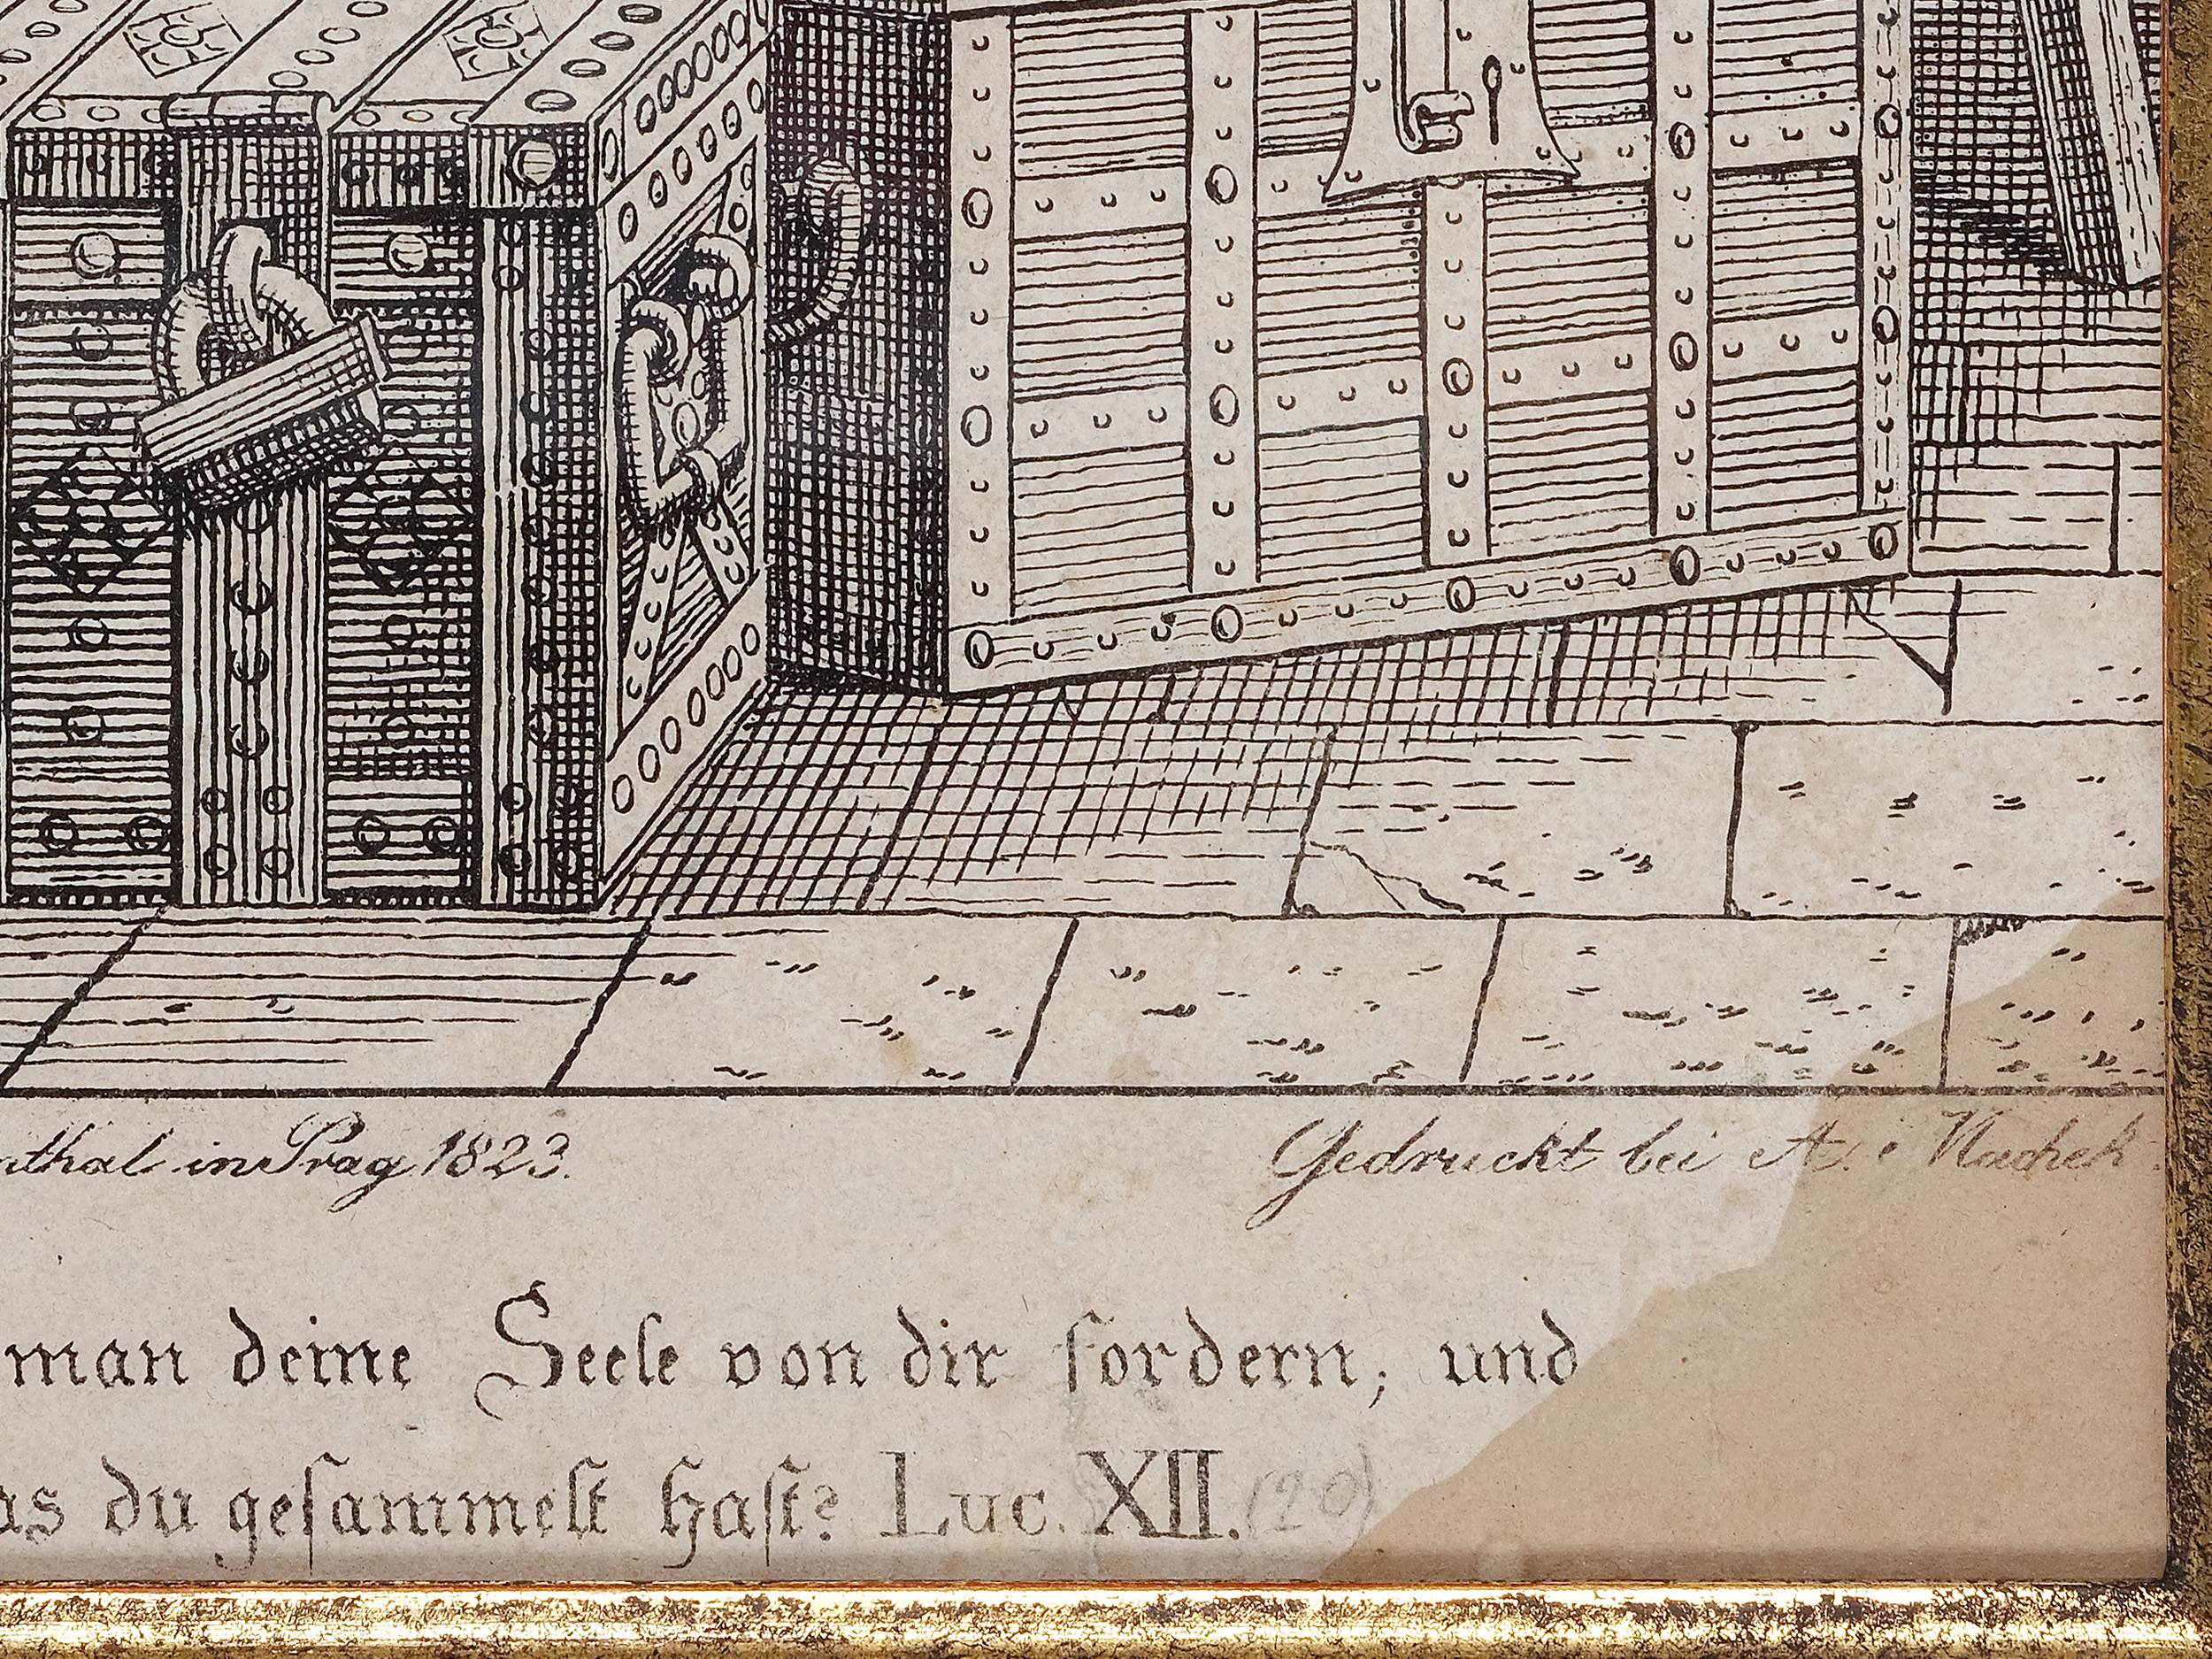 nthal in Prag 1823.
Gedruckt bei A.
man deine Seele von dir fordern; und
as du geſammelt haſt? Luc. XII. (20)